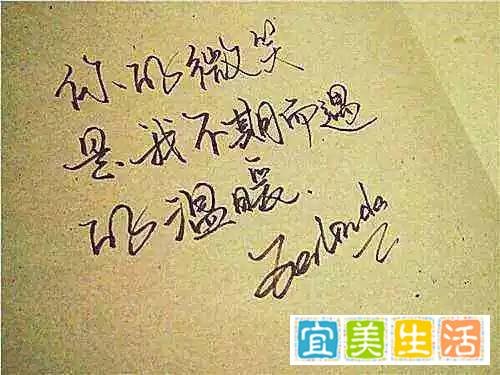 你的微笑
是我不期而遇
的温暖.
宜美生活